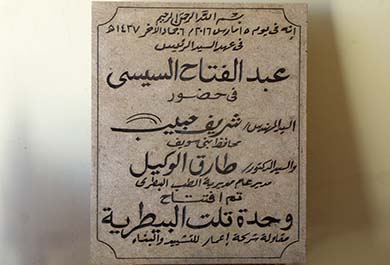 بسم الله الرحمن الرحيم
إنه فى يوم ١٥ مارس ٢٠١٦م ٦ جماد الآخر ١٤٣٧هـ
فى عهد السيد الرئيس
عبد الفتاح السيسى
فى حضور
السيد المهندس/ شريف حبيب
محافظ بنى سويف
والسيد الدكتور/ طارق الوكيل
مدير عام مديرية الطب البيطرى
تم افتتاح
وحدة تلت البيطرية
مقاولة شركة إعمار للتشييد والبناء